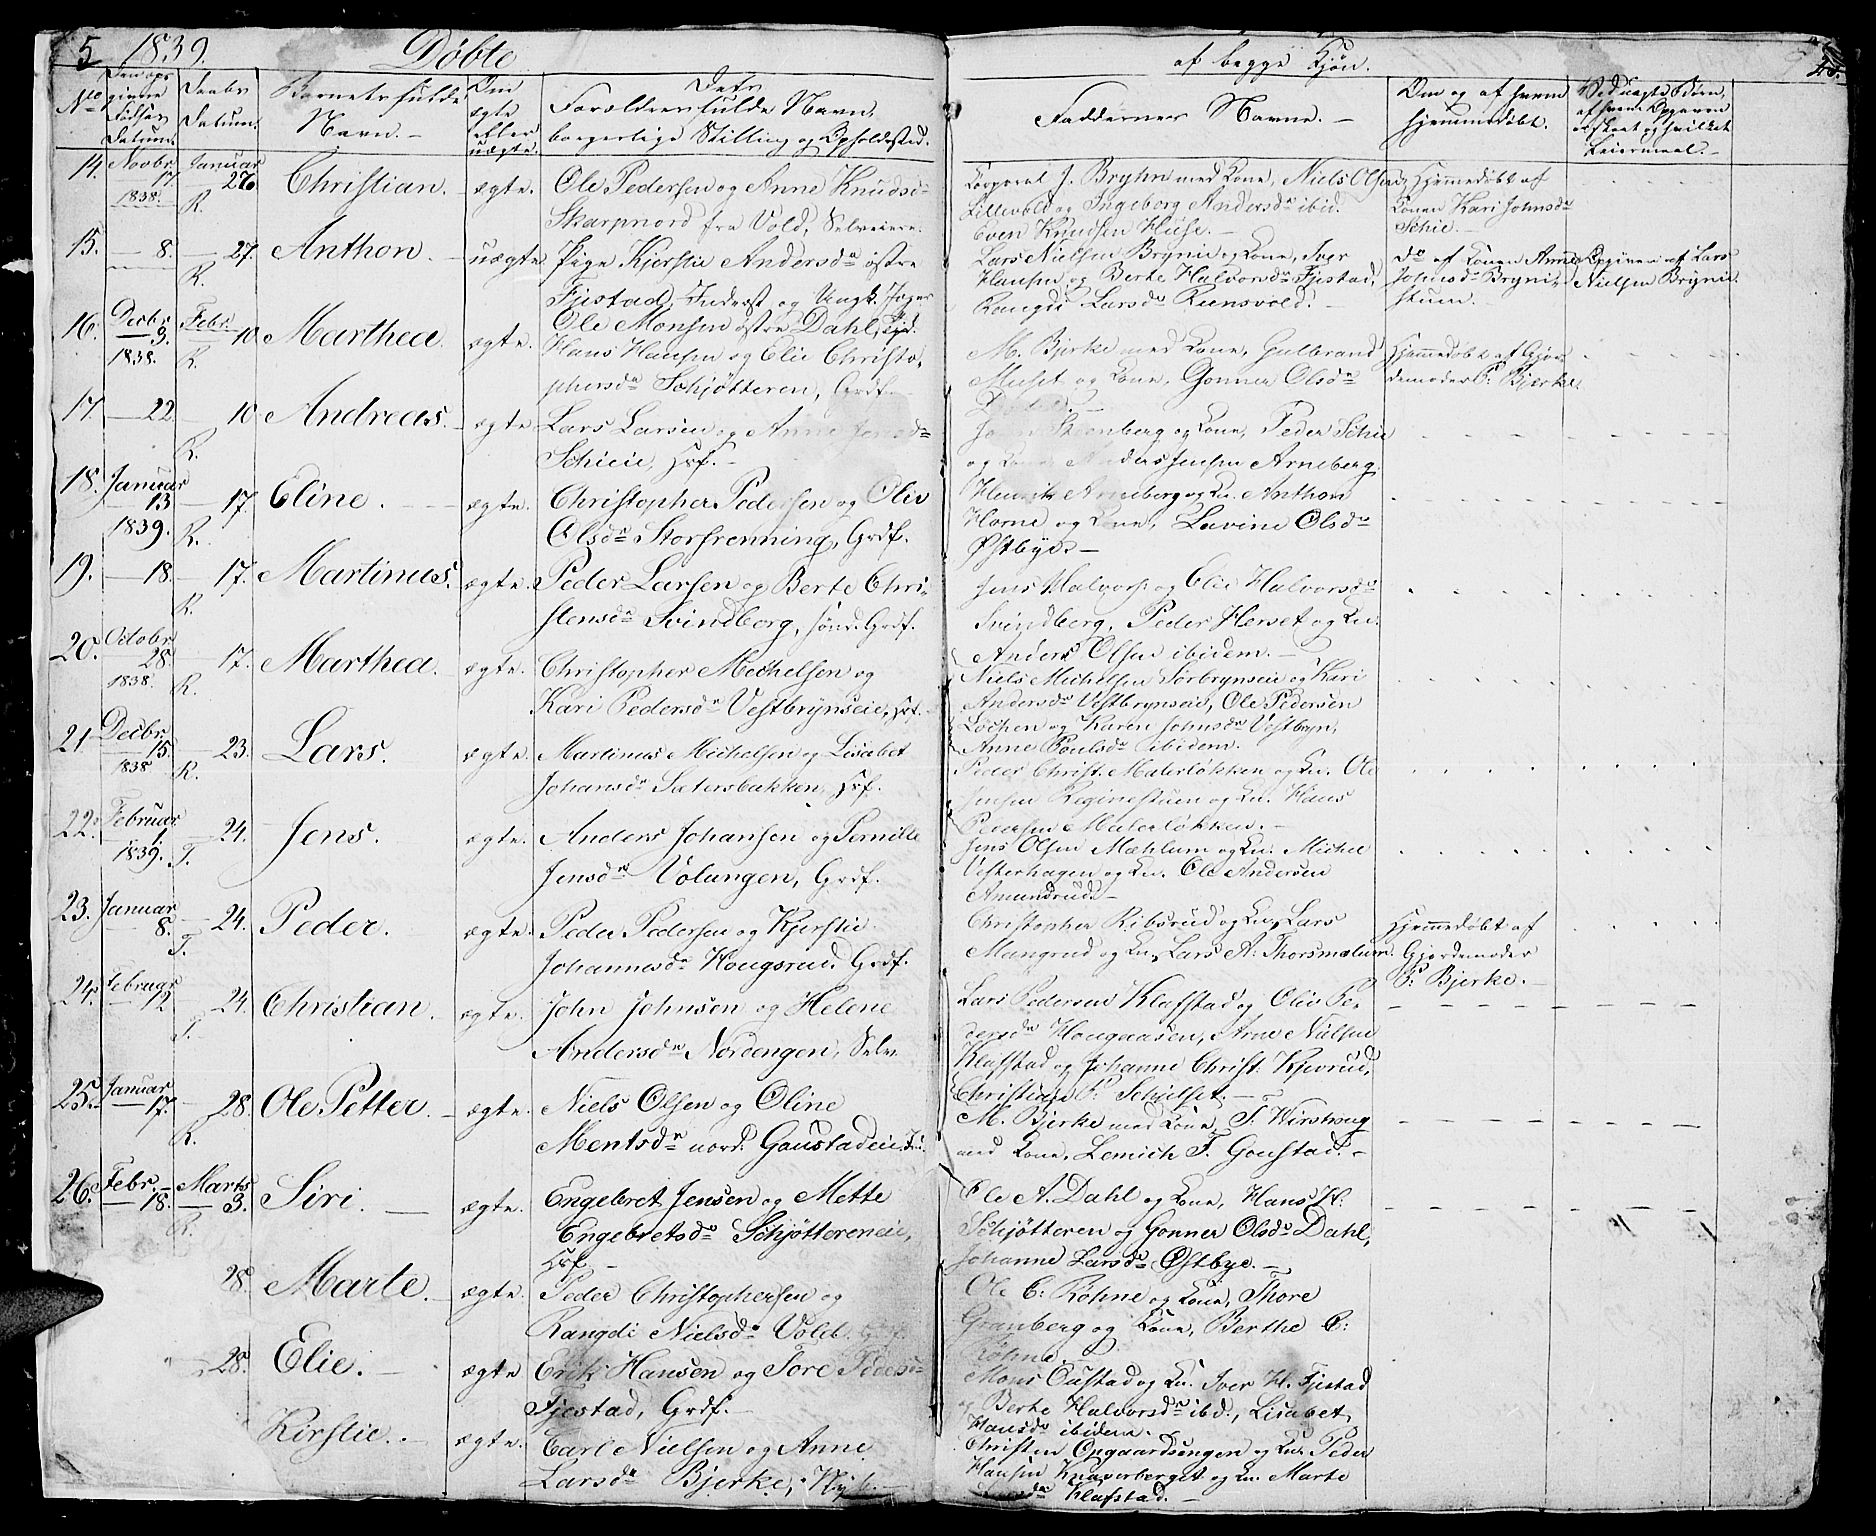 5 1839. Døbte
af begge Kjøn.
No
Den opgivne Fødsels Datum.
Daabs Datum.
Barnets fulde Navn. —
Om ægte eller uægte.
Dets Forældres fulde Navn, borgerlige Stilling og Opholdssted.
Faddernes Navne. —
Om og af hvem hjemmedøbt.
14. Novbr 17. 1838. Januar 26 R. Christian. ægte. Ole Pedersen og Anne Knudsd
Skarpnord fra Vold, Selveiere.
Corporal J. Bryhn med Kone, Niels Olsen
Lillevold og Ingeborg Andersdr ibid.
Even Knudsen Huse. —
Hjemmedøbt af
Konen Kari Johnsdr
Schie. —
15. — 8. — 27. R. Anthon. uægte. Pige Kjerstie Andersdr østre
Fjestad, Inderst og Ungk.
Lars Nielsen Brynie og Kone, Iver
Hansen og Berte Halvorsdr Fjestad,
Rangdi Larsdr
do af Konen Anne
Johnsdr Brynie
stuen. —
Opgiven af Lars
Nielsen Brynie
16. Decbr 9. 1838. Febr. 10 R. Marthea. ægte. Ole Monsen østre Dahl,
Hans Hansen og Elie Christo-
phersdr Schjøtteren, Grdf. —
M. Bjerke med Kone, Gulbrand
Muset og Kone, Gonner Olsdr
Hjemmedøbt af Gjor
demoder P. Bjerke.
17. — 22 — 10 R. Andreas. ægte. Lars Larsen og Anne Jensdr
Schieie, Hsf. —
Stenberg og Kone, Peder Schie
og Kone Anders Jensen Arneberg.
18. Januar 13 1839. — 17. R. Eline. ægte. Christopher Pedersen og Olie
Olsdr Storfrenning, Grdf.
Henrik Arneberg og Kn. Anthon
Horne og Kone, Lavine Olsdr
Østbye. —
19. — 18. — 17. R. Martinus. ægte. Peder Larsen og Berte Chri-
stensdr Svindborg, søndr. Grdf.
Jens Halvors. og Elie Halvorsdr
Svindberg, Peder Herset og Kn.
Anders Olsen ibidem. —
20. Octobr 28. 1838. — 17. R. Marthea. ægte. Christopher Mechelsen og
Kari Pedersdr Vestbrynseie, Hsf.
Niels Michelsen Sørbrynseie og Kari
Andersdr Vestbrynseie, Ole Pedersen
Løchen og Karen Johnsdr Vestbryn,
Anne Poulsdr ibidem.
21 Decbr. 15. 1838 — 23. R. Lars. ægte. Martinus Michelsen og Lisabet
Johansdr Sætersbakken, Hsf.
Peder Christ. Malerløkken og Kn. Ole
Jensen Reginestuen og Kn. Hans
Pedersen Malerløkken. —
22. Februar 1. 1839. — 24. T. Jens. ægte. Anders Johansen og Pernille
Jensdr Volungen, Grdf.
Jens Olsen Mæhlum og Kn. Michel
Vesterhagen og Kn. Ole Andersen
Amundrud. —
23. Januar 8. — 24. T. Peder. ægte. Peder Pedersen og Kjerstie
Johannesdr Hougsrud. Grdf.
Christopher Ribsrud og Kn. Lars
Mangrud og Kn., Lars A. Thorsmælum.
Hjemmedøbt af
Gjordemoder
P. Bjerke. —
24. Februar 12 — 24. T. Christian. ægte. John Johnsen og Helene
Andersdr Nordengen, Selv.
Lars Pedersen Klafstad og Olie Pe-
dersdr Hougaasen, Arne Nielsen
Klafstad og Johanne Christ. Kjevrud,
Christian P. Schielset. —
25. Januar 17. — 28. R. Ole Petter. — ægte. Niels Olsen og Oline
Mentsdr nord. Gaustadeie,
M. Bjerke med Kone, T. Wirstrug
med Kone, Lemich F. Goustad. —
26. Febr. 18. Marts 3. R. Siri. — ægte. Engebret Jensen og Mette
Engebretsdr Schjøttereneie,
Hsf. —
Ole A. Dahl og Kone, Hans H.
Schjøtteren og Gonner Olsdr Dahl,
Johanne Larsdr Østbye. —
28. Marte. — ægte. Peder Christophersen og
Rangdi Nielsdr Vold.
Ole C. Røhne og Kone, Thore
Granberg og Kone, Berthe C.
Røhne. —
— 28. Elie. — ægte Erik Hansen og Tore Pedersd
Fjestad, Grdf. —
Mons Oustad og Kn. Iver H. Fjestad
og Berte Halvorsdr ibd., Lisabet
Hansdr ibidem. —
Kirstie. — ægte. Carl Nielsen og Anne
Larsdr Bjerke,
Christen Opgaardsengen og Kn. Peder
Hansen Knaverberget og Kn. Marte
Klafstad. —